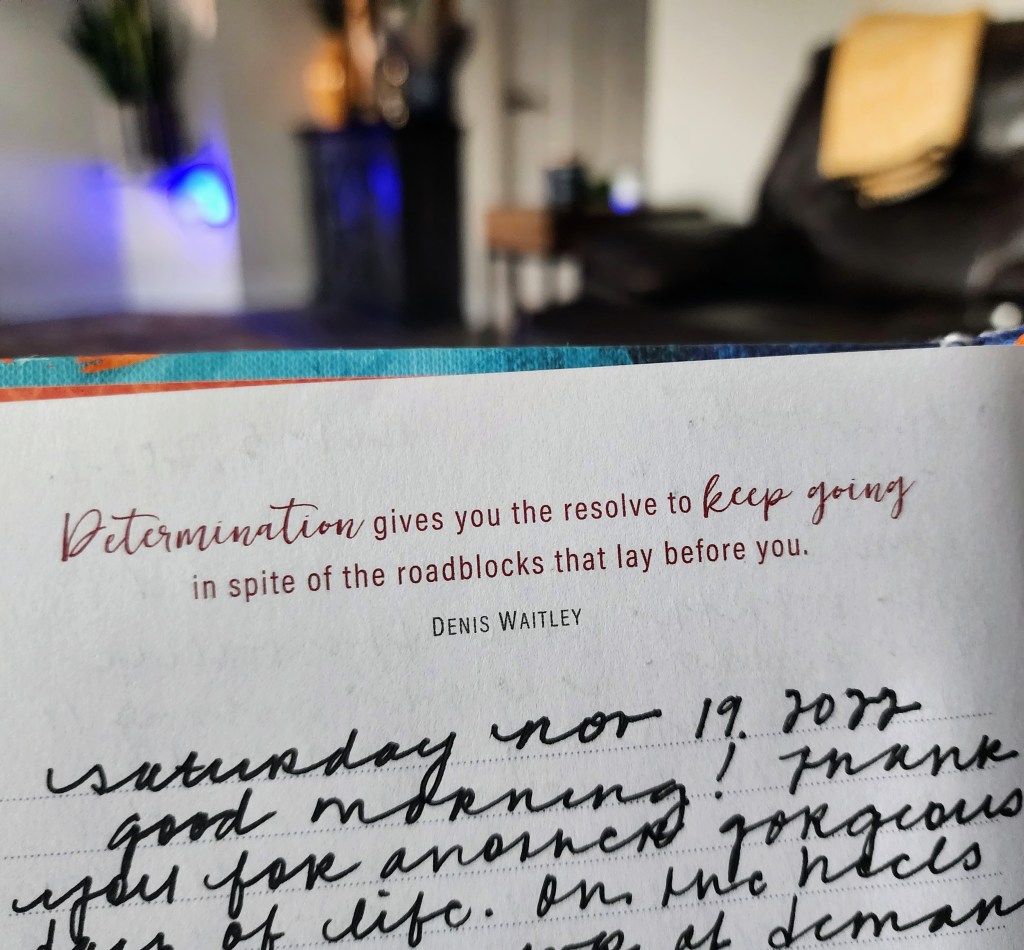 Determination gives you the resolve to keep going
in spite of the roadblocks that lay before you.
DENIS WAITLEY
saturday nov 19. 2022
good morning! Thank
you for another gorgeous
day of life. On the heels
of deman